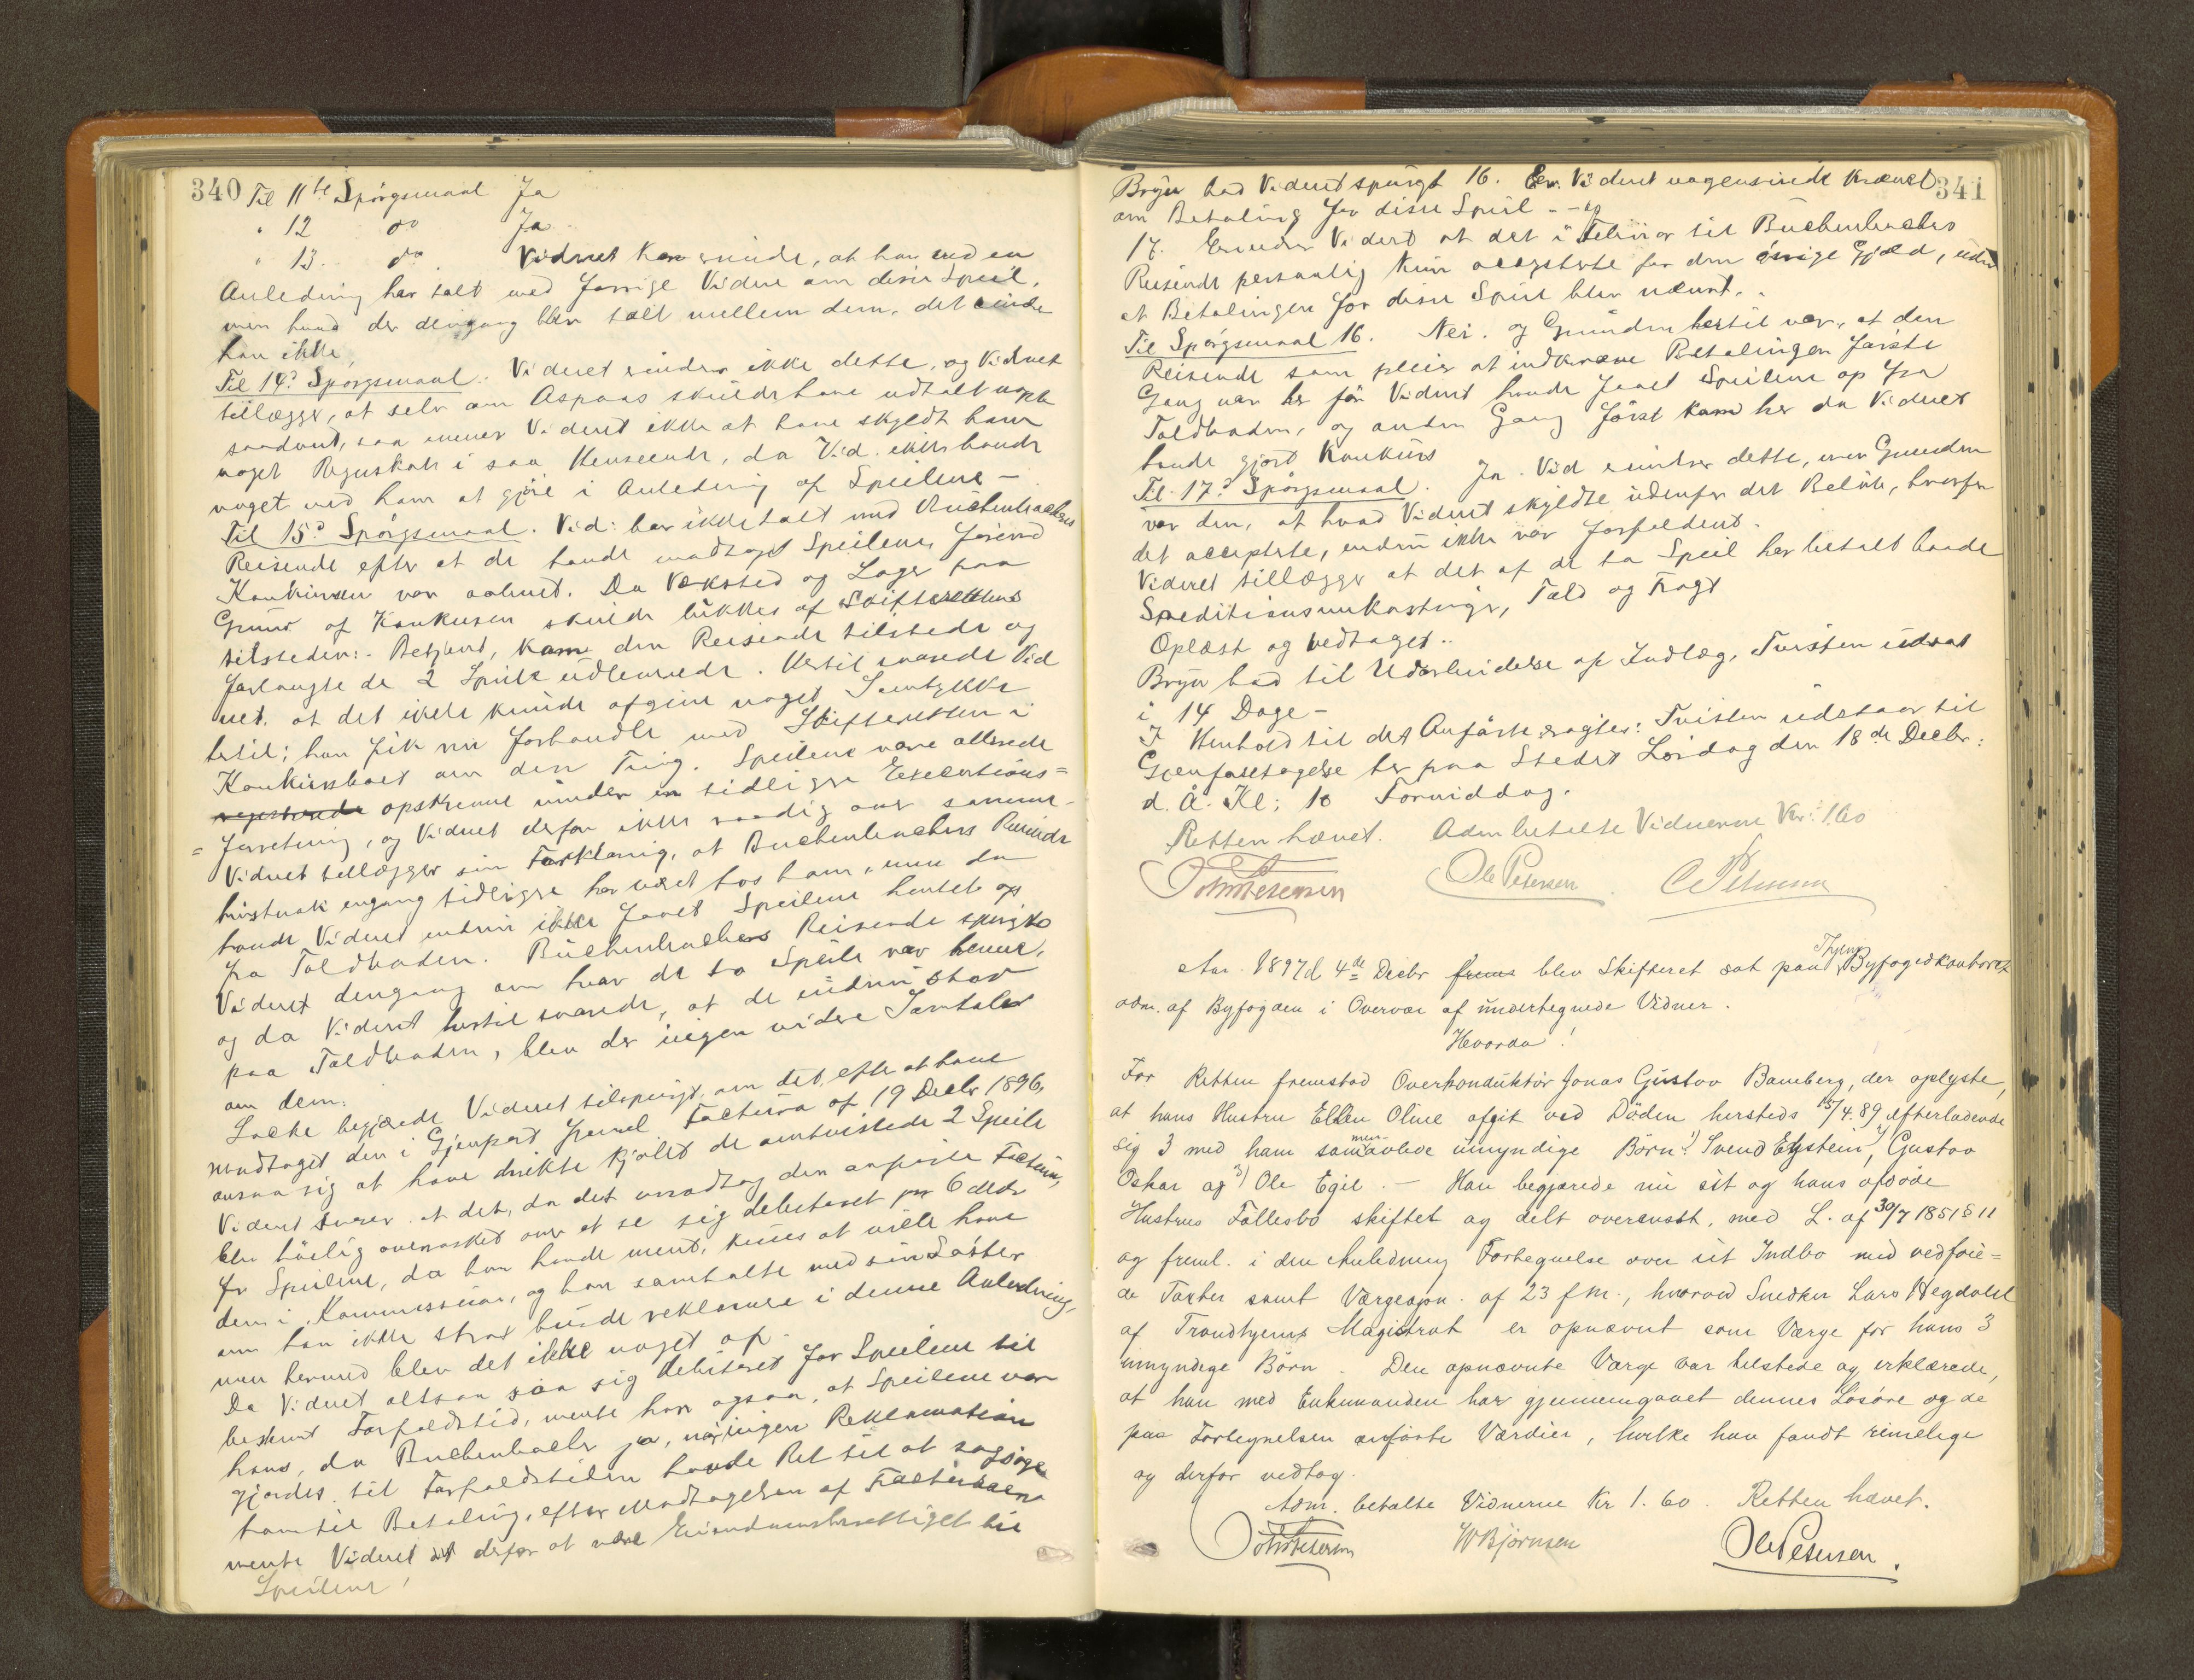 340
Til 11te Spörgsmaal Ja
" 12 do Ja
" 13. do. Vidnet kan erindre, at han ved en
Anledning har talt med forrige Vidne om disse Speil,
men hvad der dengang blev talt mellem dem, det erindrer
han ikke,
Til 14de Spörgsmaal. Videnet erindrer ikke dette, og Vidnet
tillægger, at selv om Aspaas skulde have udtalt noget
saadant, saa mener Videnet ikke at have skyldt ham
noget Regnskab i saa Henseende, da Vid. ikke havde
noget med ham at gjöre i Anledning af Speilene -
Til 15de Spörgsmaal. Vid: har ikke talt med Buchenbachers
Reisende efter at de havde modtaget Speilene, förend
Konkursen var aabnet. Da Værksted og Lager paa
Grund af Konkursen skulde lukkes af Skifterettens
tilstedev: Betjent, kom den Reisende tilstede og
forlangte de 2 Speile udleverede. Hertil svarede Vid
net. at det ikke kunde afgive noget Samtykke
hertil; han fik nu forhandle med Skifteretten i
Konkursboet om den Ting. Speilene vare allerede
opskrevne under en tidligere Executions=
= forretning, og Vidnet derfor ikke raadig over samme.
Vidnet tillægger sin Forklaring, at Buchenbachers Reisende
havde Videnet endnu ikke faaet Speilene hentet op
fra Toldboden. Buchenbachers Reisende spurgte
Videnet dengang om hvor de to Speile var henne,
og da Videnet hertil svarede, at de endnu stod
paa Toldboden, blev der ingen videre Samtale
om dem.
Locke begjærede Videnet tilspurgt, om det, efter at have
modtaget den i Gjenpart freml Factura af 19 Decbr 1896,
ansaa sig at have direkte kjöbt de omtvistede 2 Speile
Videnet svarer at det, da det modtog den anförte Factura,
blev höilig overrasket over at se sig debiteret pr 6 Mdr
for Speilene, da han havde ment, kun at ville have
dem i Kommission, og han samtalte med sin Söster
om han ikke strax burde reklamere i denne Anledning,
men hermed blev det ikke noget af.
Da Vidnet altsaa saa sig debiteret for Speilene til
bestemt Forfaldstid, mente han ogsaa, at Speilene var
hans, da Buchenbacher jo, naar ingen Reklamation
gjordes til Forfaldstiden havde Ret til at sagsöge
ham til Betaling, efter Modtagelsen af Facturaen
mente Videnet sig derfor at være Eiendomsberettiget til
Speilene!
341
Bryn bad Videnet spurgt 16. Er Videnet nogensinde krævet
om Betaling for disse Speil - og
17. Erindrer Videnet at det i Februar til Buchenbachers
Reisende personlig kun accepterte for den övrige Gjæld, uden
at Betalingen for disse Speil blev nævnt.
Til Spörgsmaal 16. Nei. og Grunden hertil var, at den
Reisende som pleier at indkræve Betalingen förste
Gang var her för Vidnet havde faaet Speilene op fra
Toldboden, og anden Gang först kom her da Vidnet
havde gjort Konkurs
Til 17de Spörgsmaal. Ja. Vid erindrer dette, men Grunden
var den, at hvad Videnet skyldte udenfor det Belöb, hvorfor
det accepterte, endnu ikke var forfaldent.
Videnet tillægger at det af de to Speil har betalt baade
Speditionsomkostninger, Told og Fragt
Oplæst og vedtaget..
Bryn bad til Udarbeidelse af Indlæg, Tvisten udsat
i 14 Dage -
I Henhold til det Anförte eragtes: Tvisten udstaar til
Gjenforetagelse her paa Stedet Lördag den 18de Decbr:
d. A. Kl: 10 Formiddag.
Retten hævet. Adm betalte Vidnerne Kr: 1.60
Ole Petersen C Petersen
Aar 1897 d 4de Decbr blev Skifteret sat paa Thjems Byfogedkontoret
adm. af Byfogden i Overvær af undertegnede Vidner.
Hvorda!
For Retten fremstod Overkonduktör Jonas Gustav Bamberg, der oplyste,
at hans Hustru Ellen Oline afgik ved Döden hersteds 15/4.89 efterladende
sig 3 med ham sammenavlede umyndige Börn: 1) Svend Eystein, 2) Gustav
Oskar og 3) Ole Egil. - Han begjærede nu sit og hans afdöde
Hustrus Fællesbo skiftet og delt overensst. med L. af 30/7 1851 § 11
og freml. i den Anledning Fortegnelse over sit Indbo med vedföie=
de Taxter samt Værgeopn. af 23 f M., hvorved Snedker Lars Hegdahl
af Trondhjems Magistrat er opnævnt som Værge for hans 3
umyndige Börn. Den opnævnte Værge var tilstede og erklærede,
at han med Enkemanden har gjennemgaaet dennes Lösöre og de
paa Fortegnelsen anförte Værdier, hvilke han fandt rimelige
og derfor vedtog.
Adm. betalte Vidnerne Kr 1.60. Retten hævet.
W Bjornsen Ole Petersen.